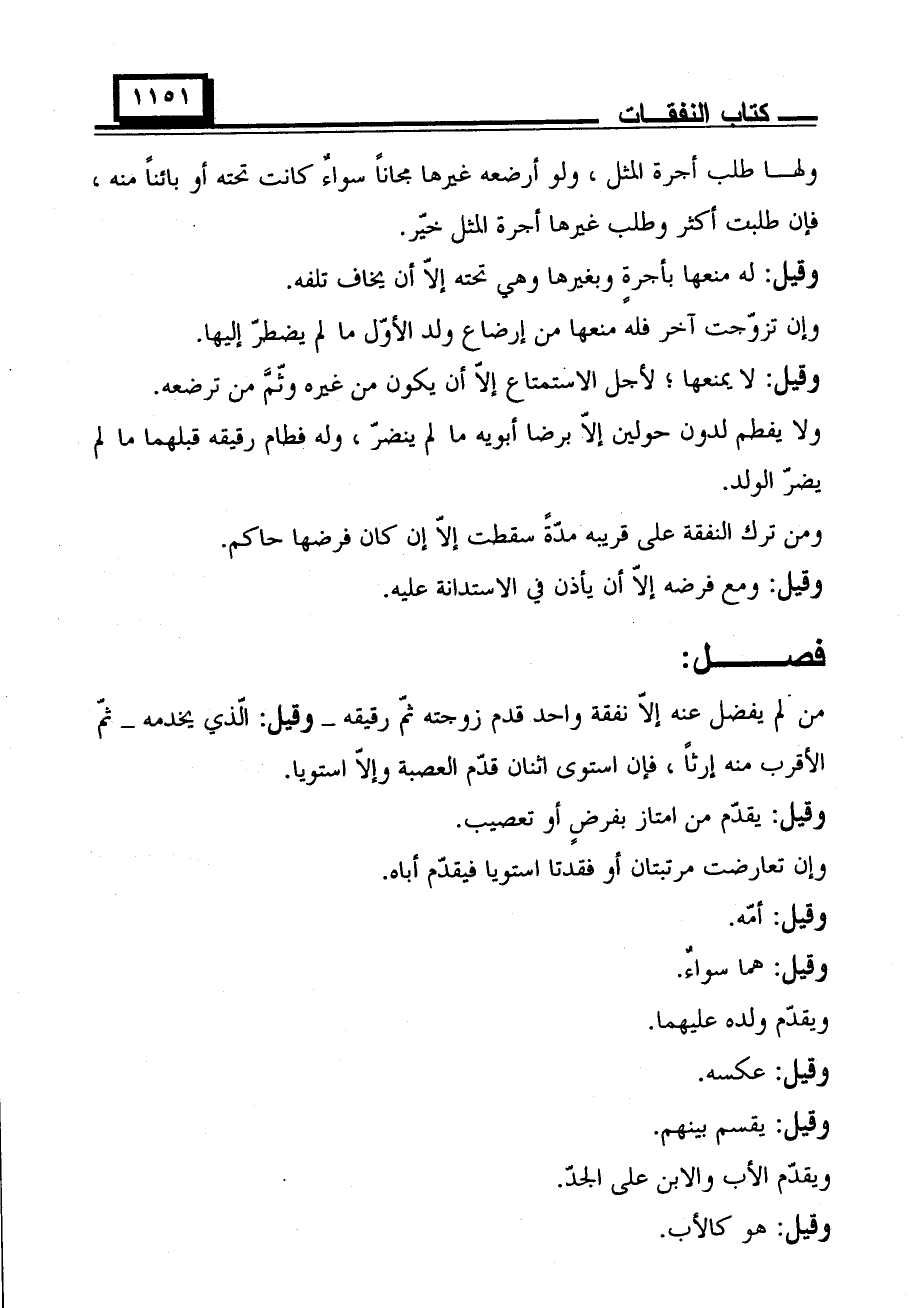 كتاب النفقات
١١٥١
ولها طلب أجرة المثل ، ولو أرضعه غيرها مجاناً سواءٌ كانت تحته أو بائناً منه ،
فإن طلبت أكثر وطلب غيرها أجرة المثل خيّر.
وقيل: له منعها بأجرةٍ وبغيرها وهي تحته إلاّ أن يخاف تلفه.
وإن تزوّجت آخر فله منعها من إرضاع ولد الأوّل ما لم يضطرّ إليها.
وقيل: لا يمنعها ؛ لأجل الاستمتاع إلاّ أن يكون من غيره وثَمَّ من ترضعه.
ولا يفطم لدون حولين إلاّ برضا أبويه ما لم ينضرّ ، وله فطام رقيقه قبلهما ما لم
يضرّ الولد.
ومن ترك النفقة على قريبه مدّةً سقطت إلاّ إن كان فرضها حاكم.
وقيل: ومع فرضه إلاّ أن يأذن في الاستدانة عليه.
فصل:
من لم يفضل عنه إلاّ نفقة واحد قدم زوجته ثمّ رقيقه _ وقيل: الّذي يخدمه _ ثمّ
الأقرب منه إرثاً ، فإن استوى اثنان قدّم العصبة وإلاّ استويا.
وقيل: يقدّم من امتاز بفرضٍ أو تعصيب.
وإن تعارضت مرتبتان أو فقدتا استويا فيقدّم أباه.
وقيل: أمّه.
وقيل: هما سواءٌ.
ويقدّم ولده عليهما.
وقيل: عكسه.
وقيل: يقسم بينهم.
ويقدّم الأب والابن على الجدّ.
وقيل: هو كالأب.